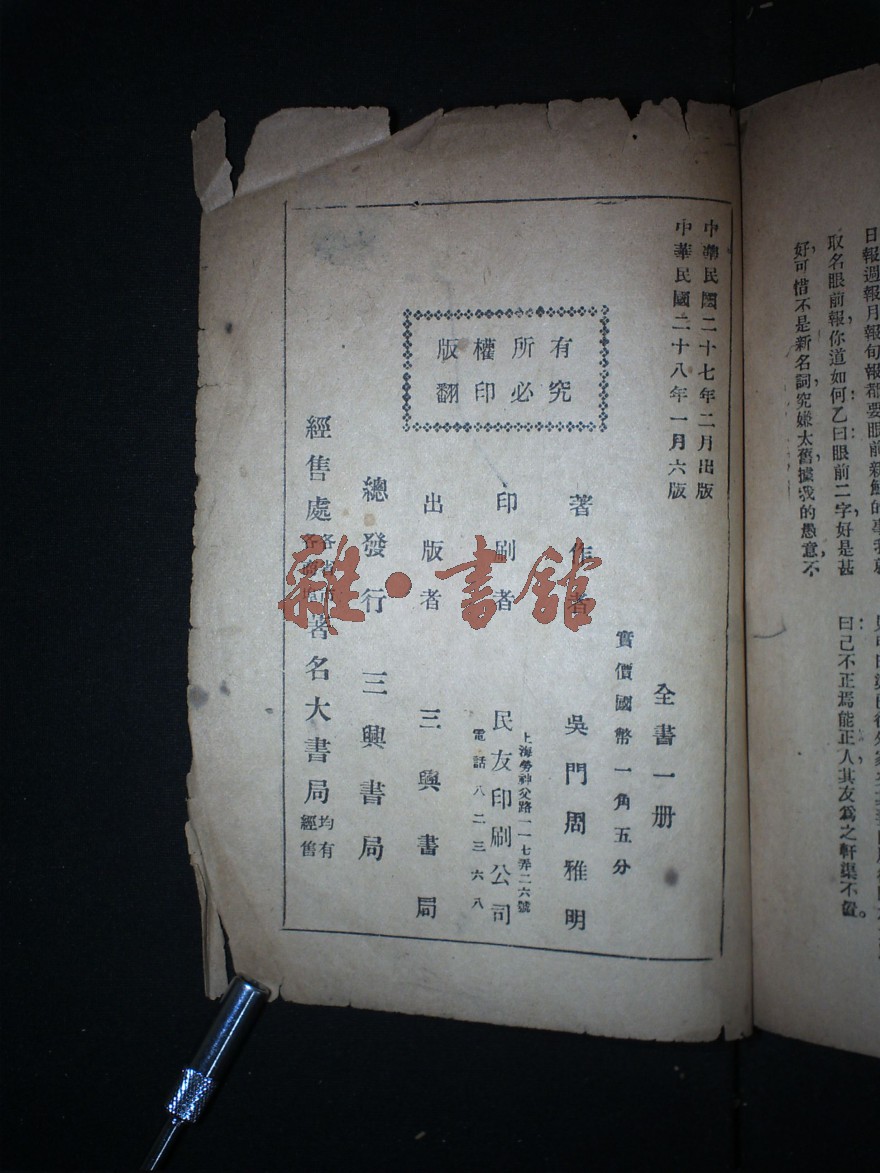 日報週報月報旬報都要眼前新鮮的事我就
取名眼前報你道如何乙曰眼前二字好是甚
好可惜不是新名詞究嫌太舊據我的愚意不
曰己不正焉能正人其友爲之軒渠不置。
中華民國二十七年二月出版
中華民國二十八年一月六版
版權所有
翻印必究
全書一册
實價國幣一角五分
著作者 吳門周雅明
印刷者 民友印刷公司
上海勞神父路一一七弄二六號
電話八二三六八
出版者 三興書局
總發行 三興書局
經售處 著名大書局 均有經售
雜·書館